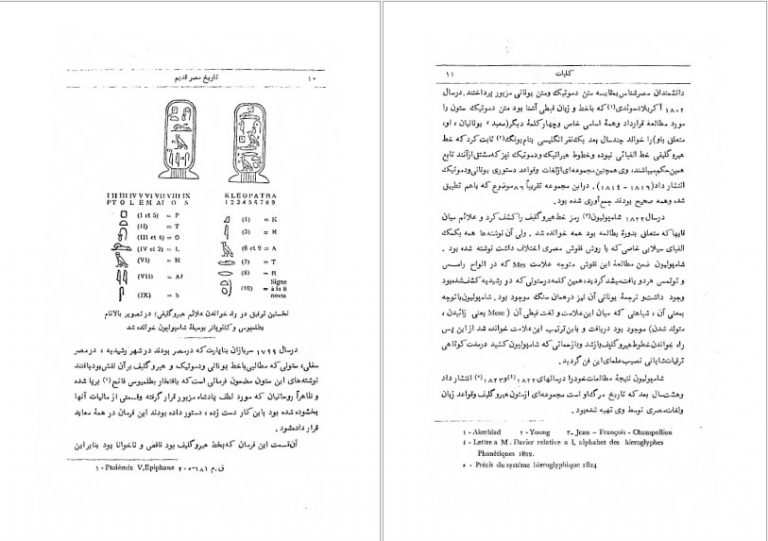 ۱۰
تاریخ مصر قدیم
I II III IV V VI VII VIII IX
P T O L E M AI O S
KLEOPATRA
1 2 3 4 5 6 7 8 9
(I et 5) = P
(II) = T
(III et 4) = O
(IV et 2) = L
(VI) = M
(VII) = AI
(IX) = S
(1) = K
(3) = E
(6 et 9) = A
(7) = T
(8) = R
(10) = Signe
à la fi
nous
نخستین توفیق در راه خواندن علائم هیروگلیفی؛ در تصویر بالا نام
بطلمیوس و کلئوپاتر بوسیلهٔ شامپولیون خوانده شد
در سال ۱۷۹۹ سربازان بناپارت که در مصر بودند در شهر رشیدیه، در مصر
سفلی، ستونی که مطالبی باخط یونانی ودموتیک و هیروگلیف برآن نقش بود یافتند
نوشته‌های این ستون مضمون فرمانی است که بافتخار بطلمیوس فاتح(۱) برپا شده
و ظاهراً روحانیان که مورد لطف پادشاه مزبور قرار گرفته وقسمتی از مالیات آنها
بخشوده شده بود باین کار دست زده، دستور داده بودند این فرمان در همهٔ معابد
قرار داده شود.
آن قسمت این فرمان که بخط هیروگلیف بود ناقص و ناخوانا بود بنابراین
۱ - Ptolémée V, Epiphane ۲۰۵-۱۸۱ ق.م
کلیات
۱۱
دانشمندان مصرشناس بمقایسه متن دموتیک ومتن یونانی مزبور پرداختند. در سال
۱۸۰۲ آکربلاد سوئدی(۱) که باخط و زبان قبطی آشنا بود متن دموتیک ستون را
مورد مطالعه قرارداد وهمهٔ اسامی خاص وچهار کلمهٔ دیگر (معبد، یونانیان، او،
متعلق باو) را خواند چندسال بعد یک نفر انگلیسی بنام یونگ(۲) ثابت کرد که خط
هیروگلیفی خط الفبائی نبوده وخطوط هیراتیک ودموتیک نیز که مشتق از آنند تابع
همین حکم میباشند، وی همچنین مجموعه‌ای از لغات وقواعد دستوری یونانی ودموتیک
انتشار داد (۱۸۱۶ - ۱۸۱۴). در این مجموعه تقریباً ۸۶ موضوع که باهم تطبیق
شده، وهمه صحیح بودند جمع‌آوری شده بود.
در سال ۱۸۲۲ شامپولیون(۳) رمز خط هیروگلیف را کشف کرد و علائم میان
قابها که متعلق بدورهٔ بطالمه بود همه خوانده شد. ولی آن نوشته‌ها همه بکمک
الفبای سیلابی خاصی که با روش نقوش مصری اختلاف داشت نوشته شده بود.
شامپولیون ضمن مطالعهٔ این نقوش متوجه علامت Mes که در الواح رامسس
و توتمس هر دو یافت میشد گردید، همین کلمه در ستونی که در رشیدیه کشف شده بود
وجود داشت و ترجمهٔ یونانی آن نیز درهمان سنگ موجود بود. شامپولیون باتوجه
بمعنی آن، شباهتی که میان این علامت و لغت قبطی آن (Mose یعنی زائیدن،
متولد شدن) موجود بود دریافت و باین ترتیب این علامت خوانده شد از این پس
راه خواندن خطوط هیروگلیف باز شد و با زحماتی که شامپولیون کشید در مدت کوتاهی
ترقیات شایانی نصیب علمای این فن گردید.
شامپولیون نتیجهٔ مطالعات خود را در سالهای ۱۸۲۲(۴) و ۱۸۲۴(۵) انتشار داد
وهشت سال بعد که تاریخ مرگ او است مجموعه‌ای از متون هیروگلیف وقواعد زبان
ولغات مصری توسط وی تهیه شده بود.
۱ - Akerblad ۲ - Young ۳ - Jean - François - Champollion
٤ - Lettre a M. Dacier relative a l, alphabet des hieroglyphes
Phonétiques 1822.
٥ - Précis du système hieroglyphique 1824